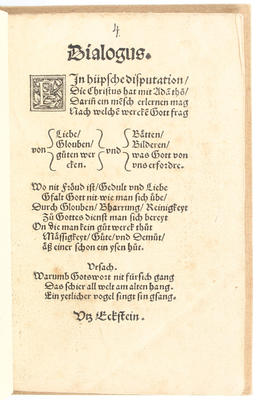 4.
Dialogus.
EIn hüpsche disputation/
Die Christus hat mit Adā thō/
Dariñ ein mēsch erlernen mag
Nach welchē werckē Gott frag
von
Liebe/
Glouben/
güten wer
cken.
vnd
Bätten/
Bilderen/
was Gott von
vns erfordre.
Wo nit Fröud ist/Gedult vnd Liebe
Gfalt Gott nit wie man sich übe/
Durch Glouben/Bharrung/Reinigkeyt
Zů Gottes dienst man sich bereyt
On die man kein gůt werck thůt
Mässigkeyt/Güte/vnd Demüt/
äß einer schon ein ysen hůt.
Vrsach.
Warumb Gotswort nit für sich gang
Das schier all welt am alten hang.
Ein yetlicher vogel singt sin gsang.
Vtz Eckstein.